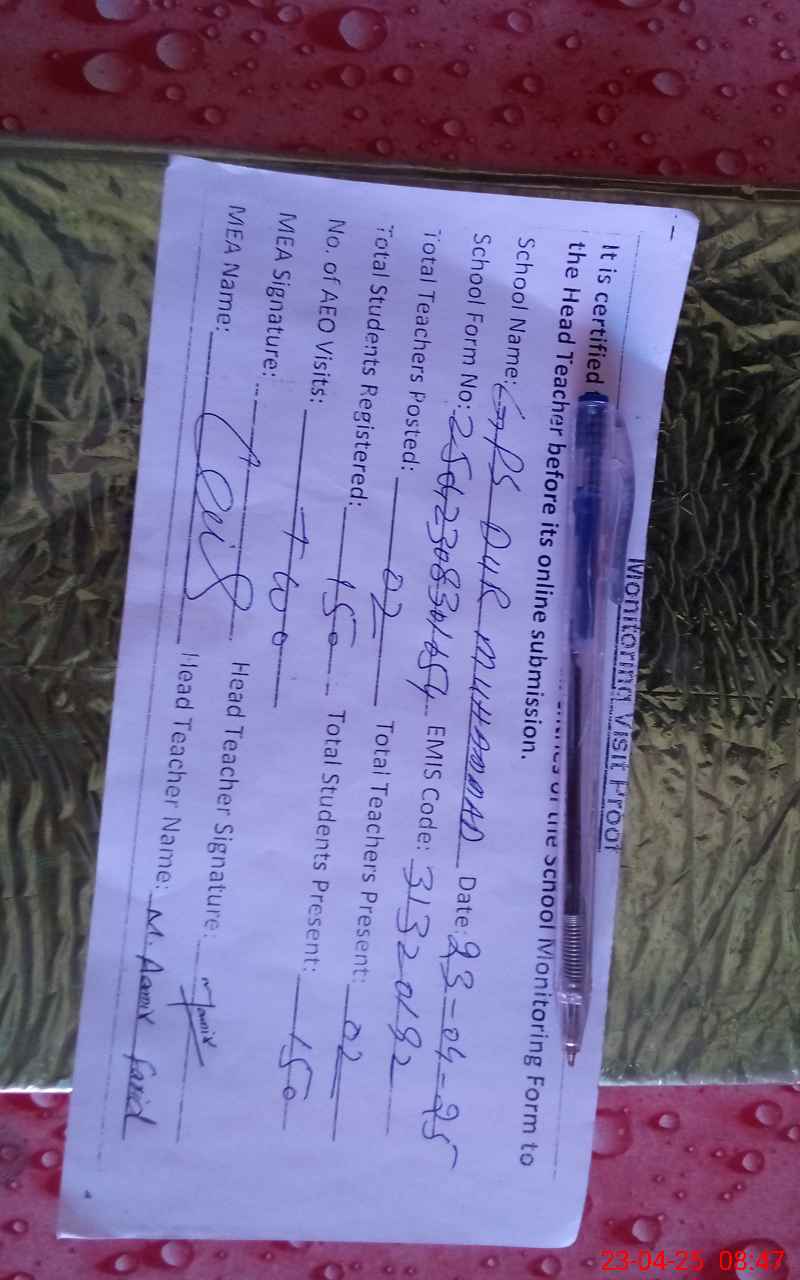 Monitoring Visit Proof
It is certified entries of the School Monitoring Form to
the Head Teacher before its online submission.
School Name: GPS DUR MUHAMMAD Date: 23-04-25
School Form No: EMIS Code: 31320192
Total Teachers Posted: 02 Total Teachers Present: 02
Total Students Registered: 150 Total Students Present: 150
No. of AEO Visits: Two
MEA Signature: Head Teacher Signature: Aamir
MEA Name: Head Teacher Name: M. Aamir farid
23-04-25 08:47